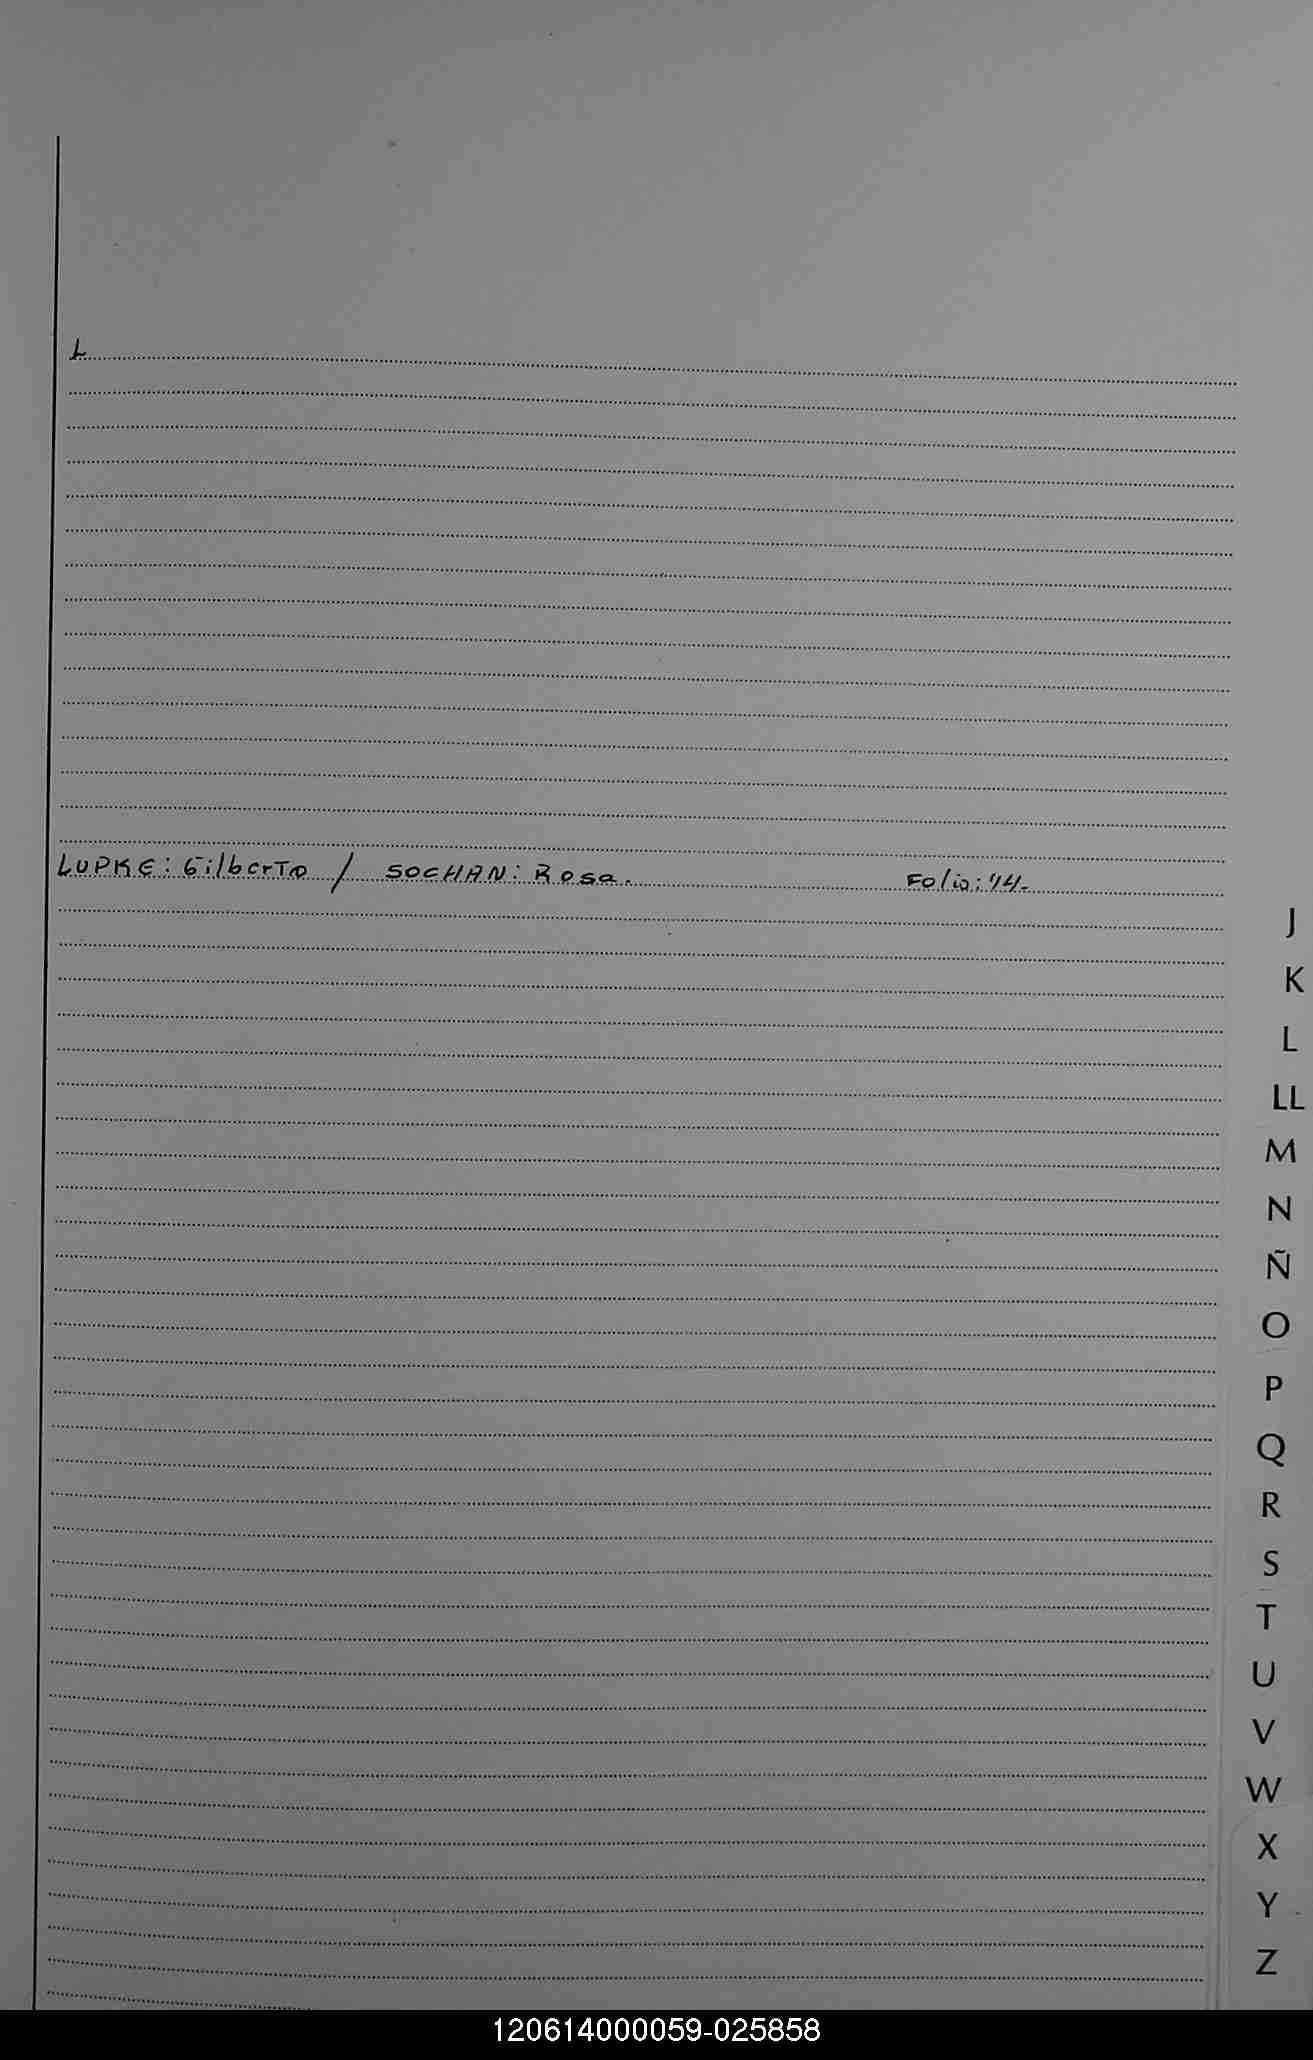 L
LUPKE: Gilberto / SOCHAN: Rosa. Folio: 14.
J
K
L
LL
M
N
Ñ
O
P
Q
R
S
T
U
V
W
X
Y
Z
120614000059-025858